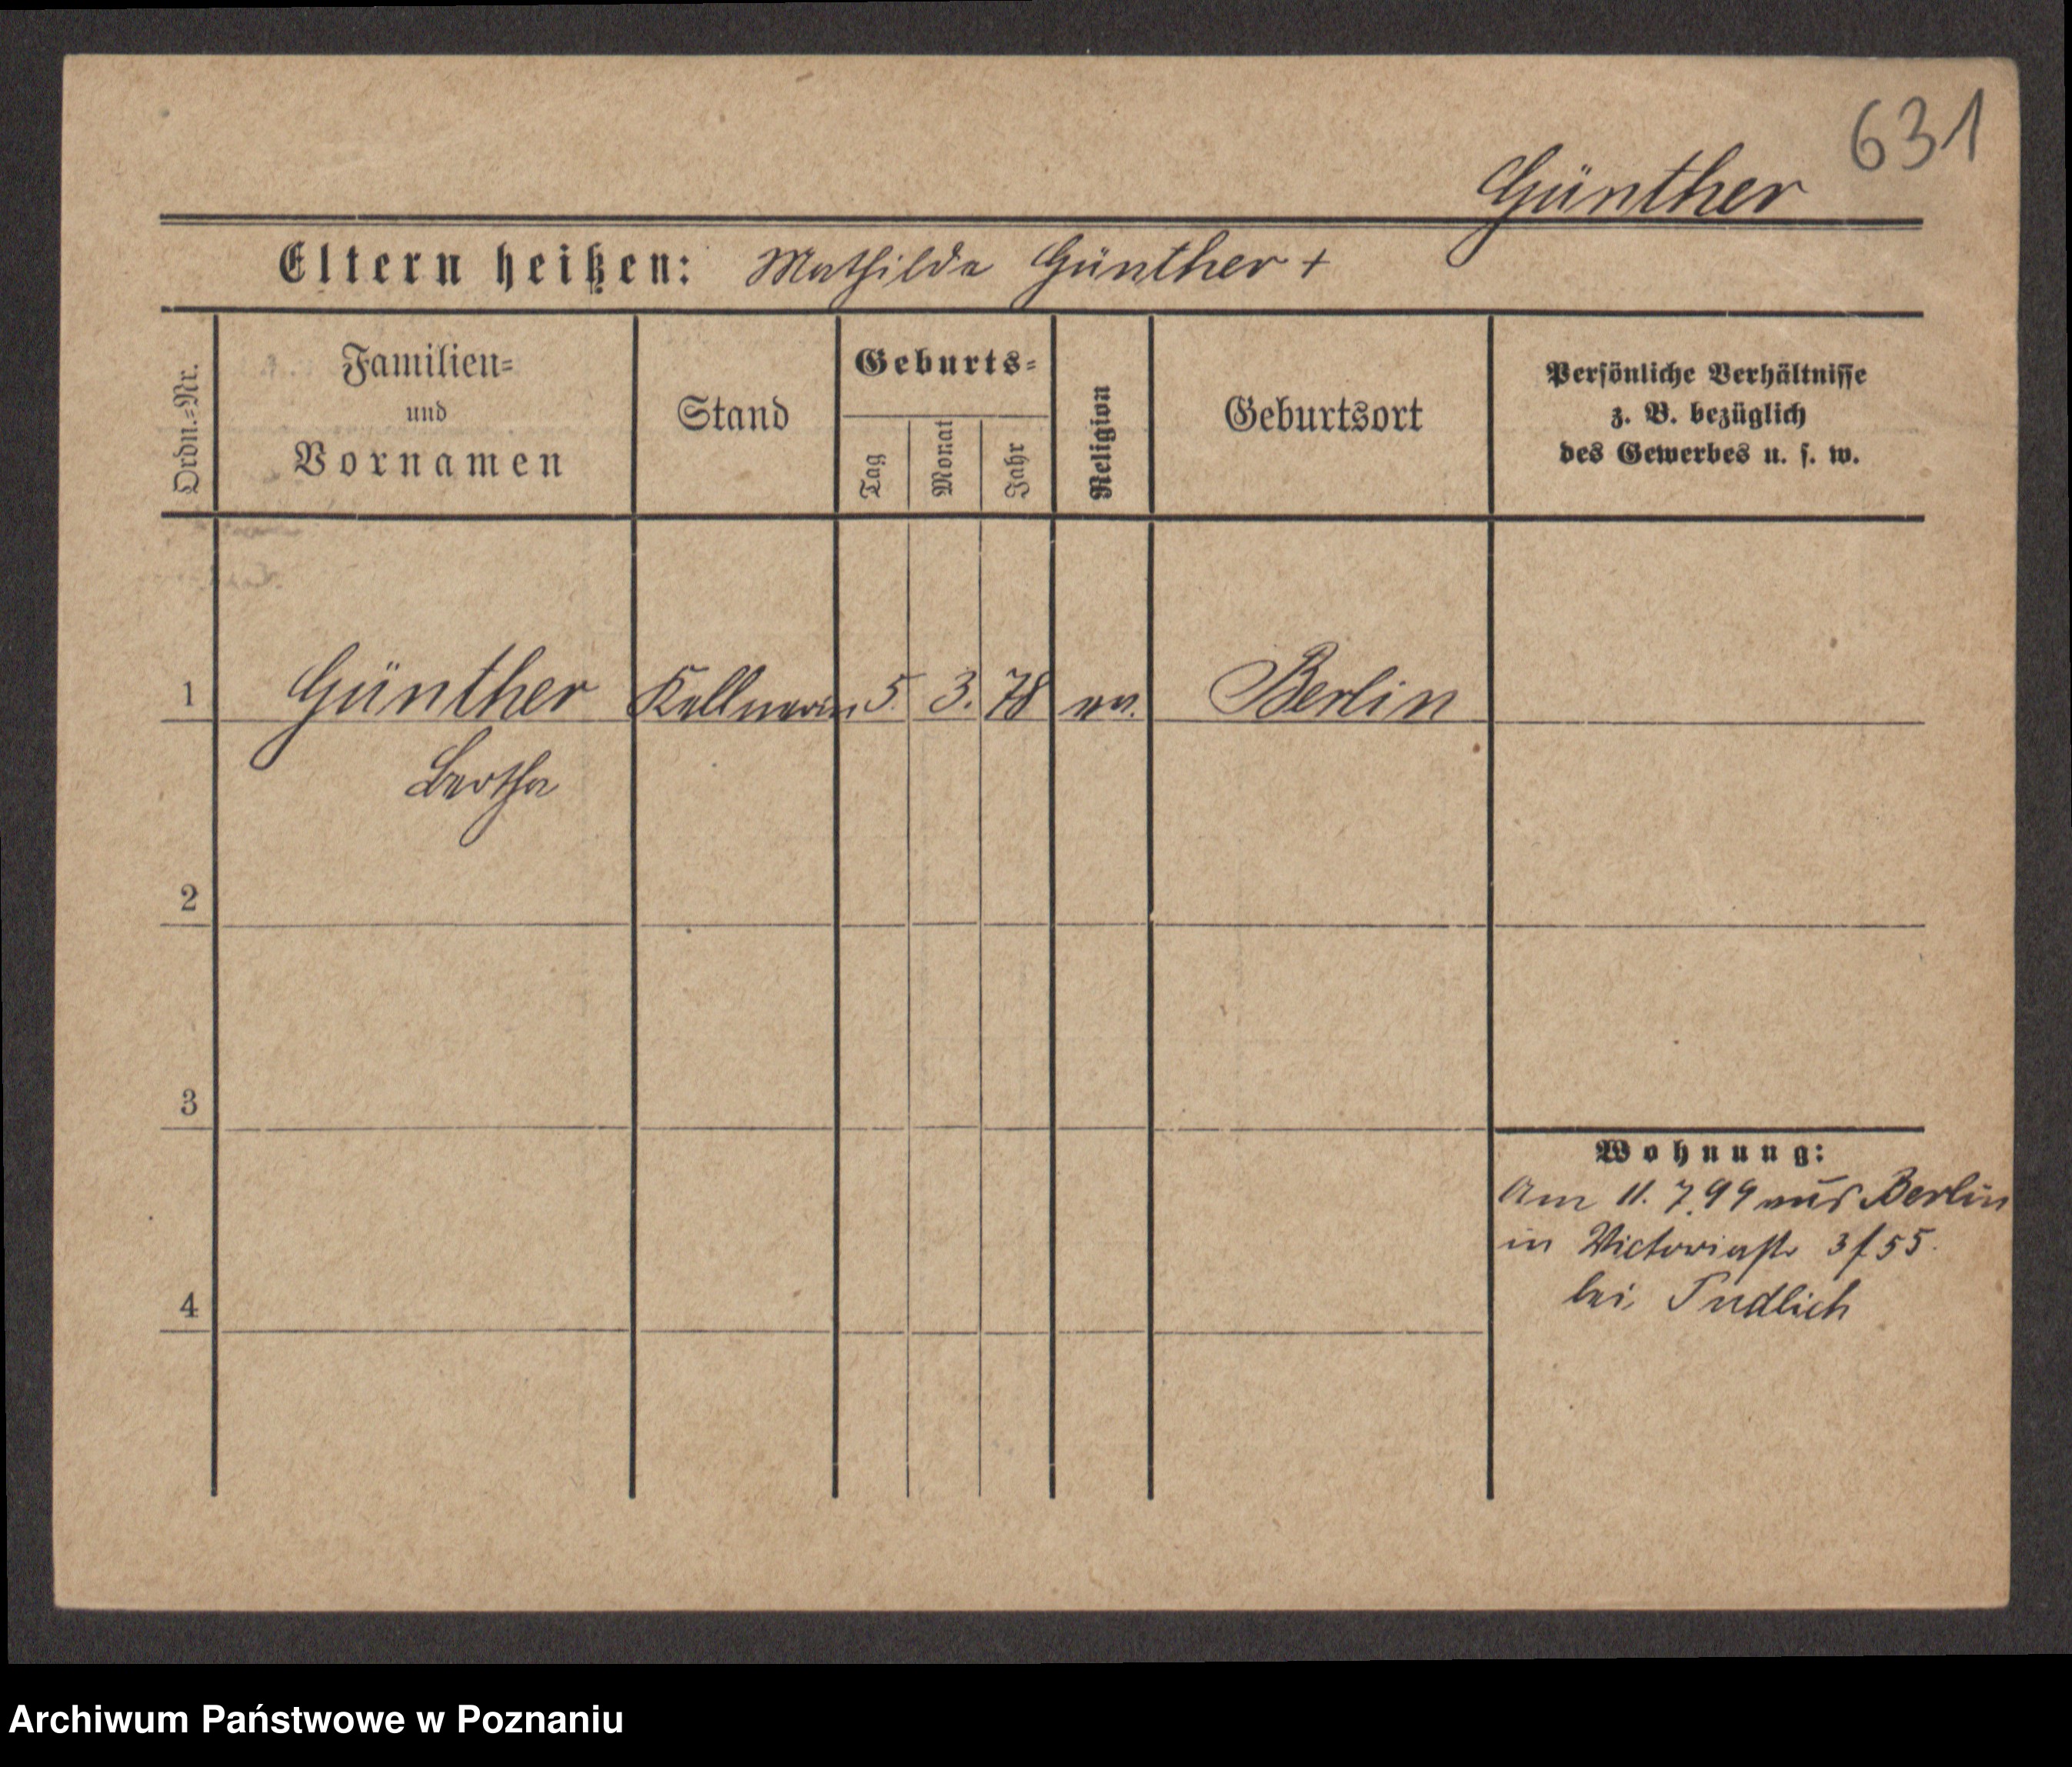 631
Günther
Eltern heißen: Mathilde Günther +
Ordn.=Nr.
Familien=
und
Vornamen
Stand
Geburts=
Tag
Monat
Jahr
Religion
Geburtsort
Persönliche Verhältnisse
z. B. bezüglich
des Gewerbes u. s. w.
1 Günther Kellnerin 5. 3. 78 ev. Berlin
Bertha
2
3
4
Wohnung:
Am 11. 7. 99 aus Berlin
in Victoriastr 3 f 55.
bei Pudlich
Archiwum Państwowe w Poznaniu